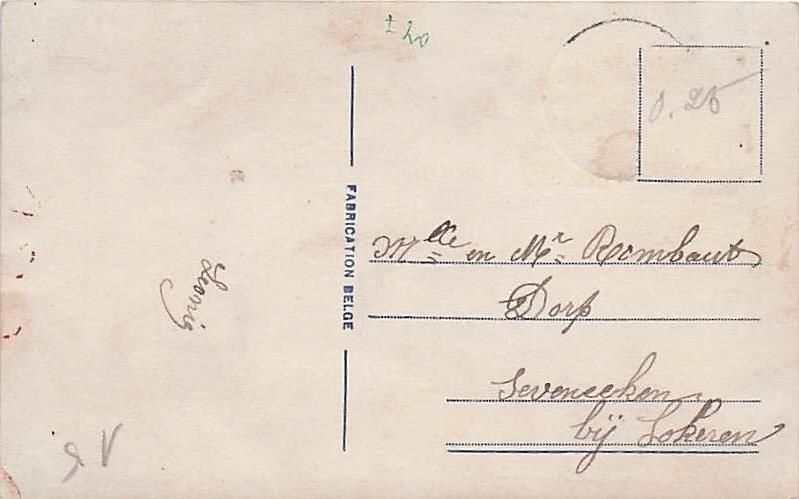 ± 20
0.25
FABRICATION BELGE
Mlle en Mr Rombaut
Dorp
Seveneeken
bij Lokeren